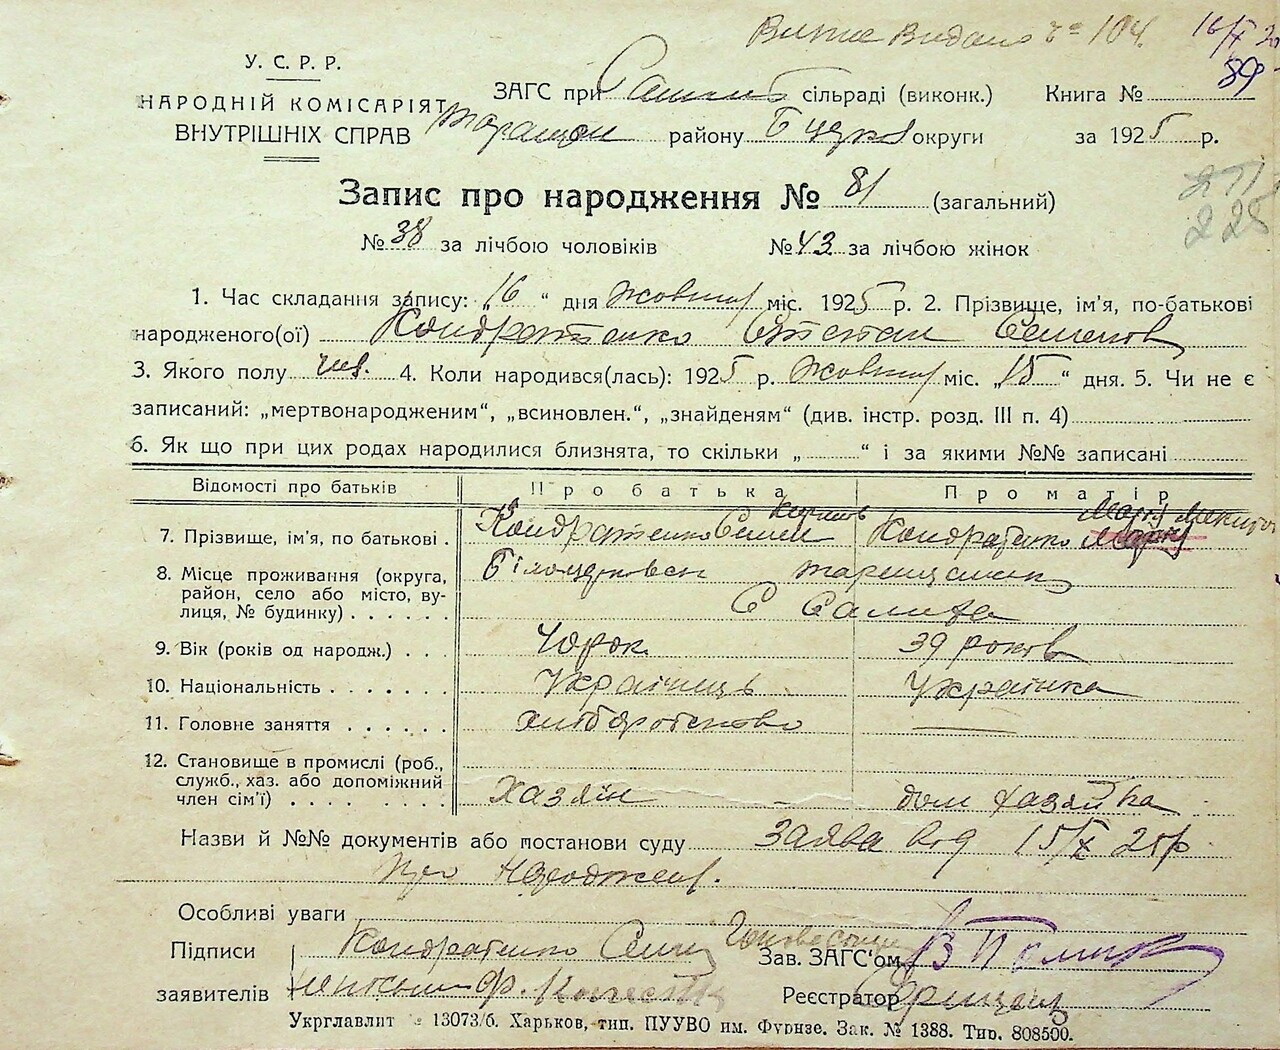 Витяг видано № 104. 16/X 20
89
У. С. Р. Р.
НАРОДНІЙ КОМІСАРІЯТ
ВНУТРІШНІХ СПРАВ
ЗАГС при сільраді (виконк.) Книга №
Таращан району Б Церков округи за 1925 р.
Запис про народження № 81 (загальний)
№ 38 за лічбою чоловіків № 43 за лічбою жінок
1. Час складання запису: „16“ дня жовтня міс. 1925 р. 2. Прізвище, ім'я, по-батькові
народженого(ої) Кондратенко Степан Семенов
3. Якого полу чол. 4. Коли народився(лась): 1925 р. жовтня міс. „15“ дня. 5. Чи не є
записаний: „мертвонародженим“, „всиновлен.“, „знайденям“ (див. інстр. розд. III п. 4)
6. Як що при цих родах народилися близнята, то скільки „ “ і за якими №№ записані
Відомості про батьків Про батька Про матір
7. Прізвище, ім'я, по батькові . Кондратенко Семен Кондратенко
8. Місце проживання (округа, Білоцерковськ таращанськ
район, село або місто, ву-
лиця, № будинку) . . . . . . С
9. Вік (років од народж.) . . . 40 рок. 39 років
10. Національність . . . . . . . Українець Українка
11. Головне заняття . . . . . . хліборобство —
12. Становище в промислі (роб.,
служб., хаз. або допоміжний
член сім'ї) . . . . . . . . Хазяін дом хазяйка
Назви й №№ документів або постанови суду Заява від 15/X 25р
про народжен.
Особливі уваги
Підписи Кондратенко Семен Зав. ЗАГС'ом
заявителів Реєстратор
Укрглавлит № 13073/б. Харьков, тип. ПУУВО им. Фрунзе. Зак. № 1388. Тир. 808500.